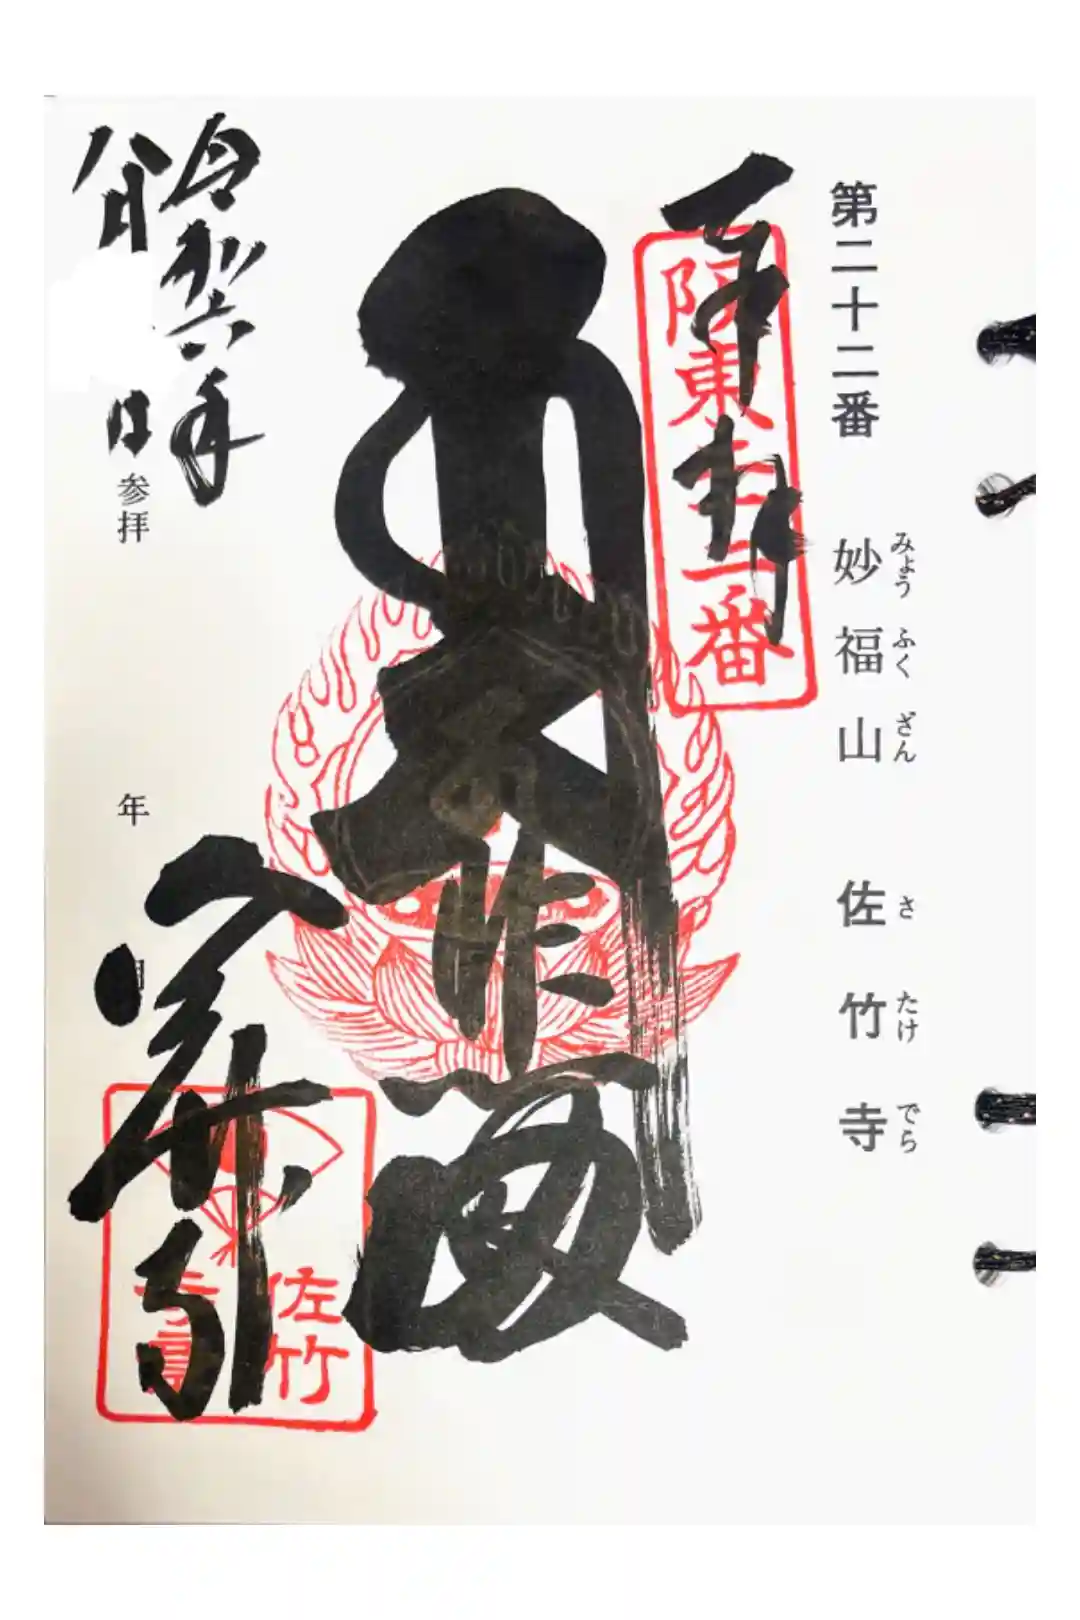 第二十二番 妙福山 佐竹寺
みょう ふく ざん さ たけ でら
奉拝
阪東廿二番
大悲殿
令和六年
八月 日
参拝
年
月
佐竹寺
佐竹